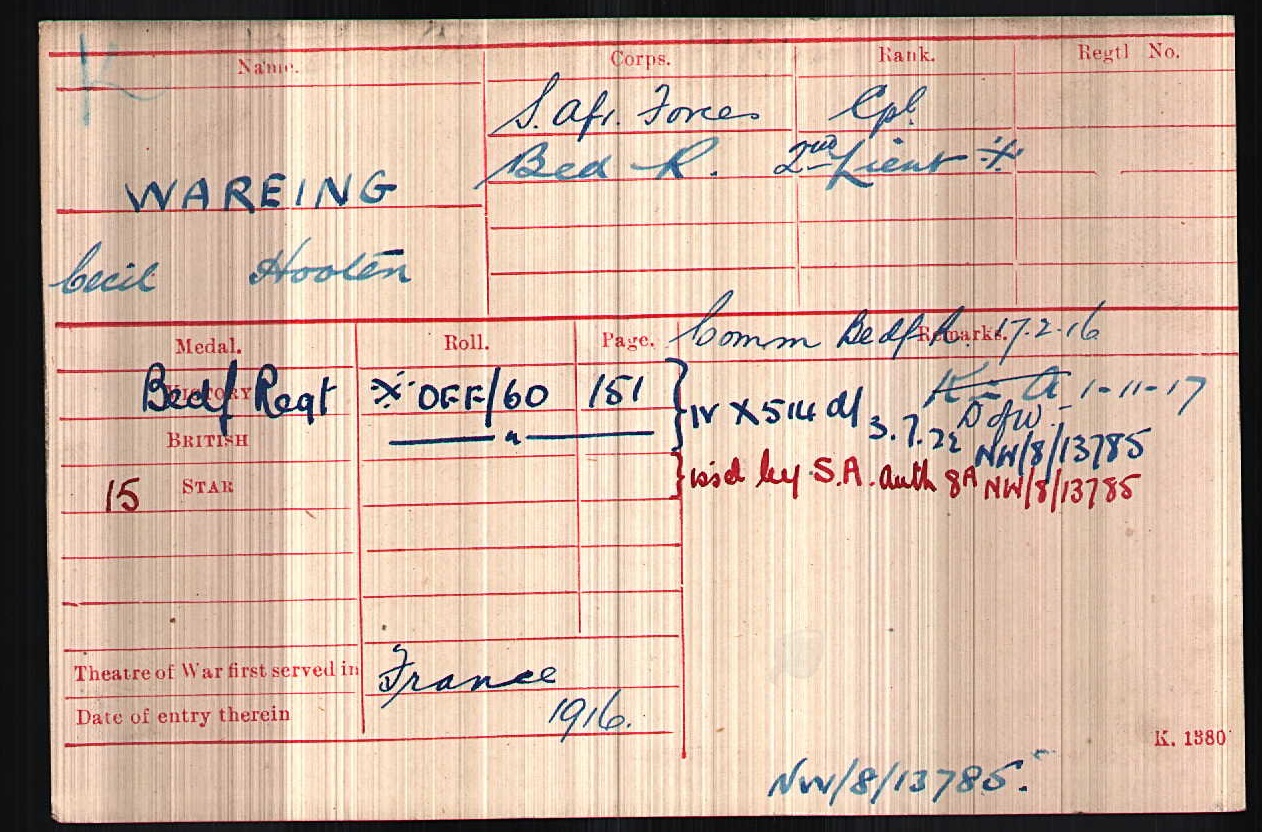 K
Name. Corps. Rank. Regtl No.
S. Afr. Forces Cpl
Bed R. 2nd Lieut ※
WAREING
Cecil Hooten
Comm Bedf R. 17.2.16
Medal. Roll. Page. Remarks.
VICTORY Bedf Regt ※ OFF/60 151
K in A 1-11-17
D of W.
IV X 514 d/ 3.7.22 NW/8/13785
BRITISH — " —
15 STAR iss'd by S.A. auth 8A NW/8/13785
Theatre of War first served in France
Date of entry therein 1916.
K. 1380
NW/8/13785.